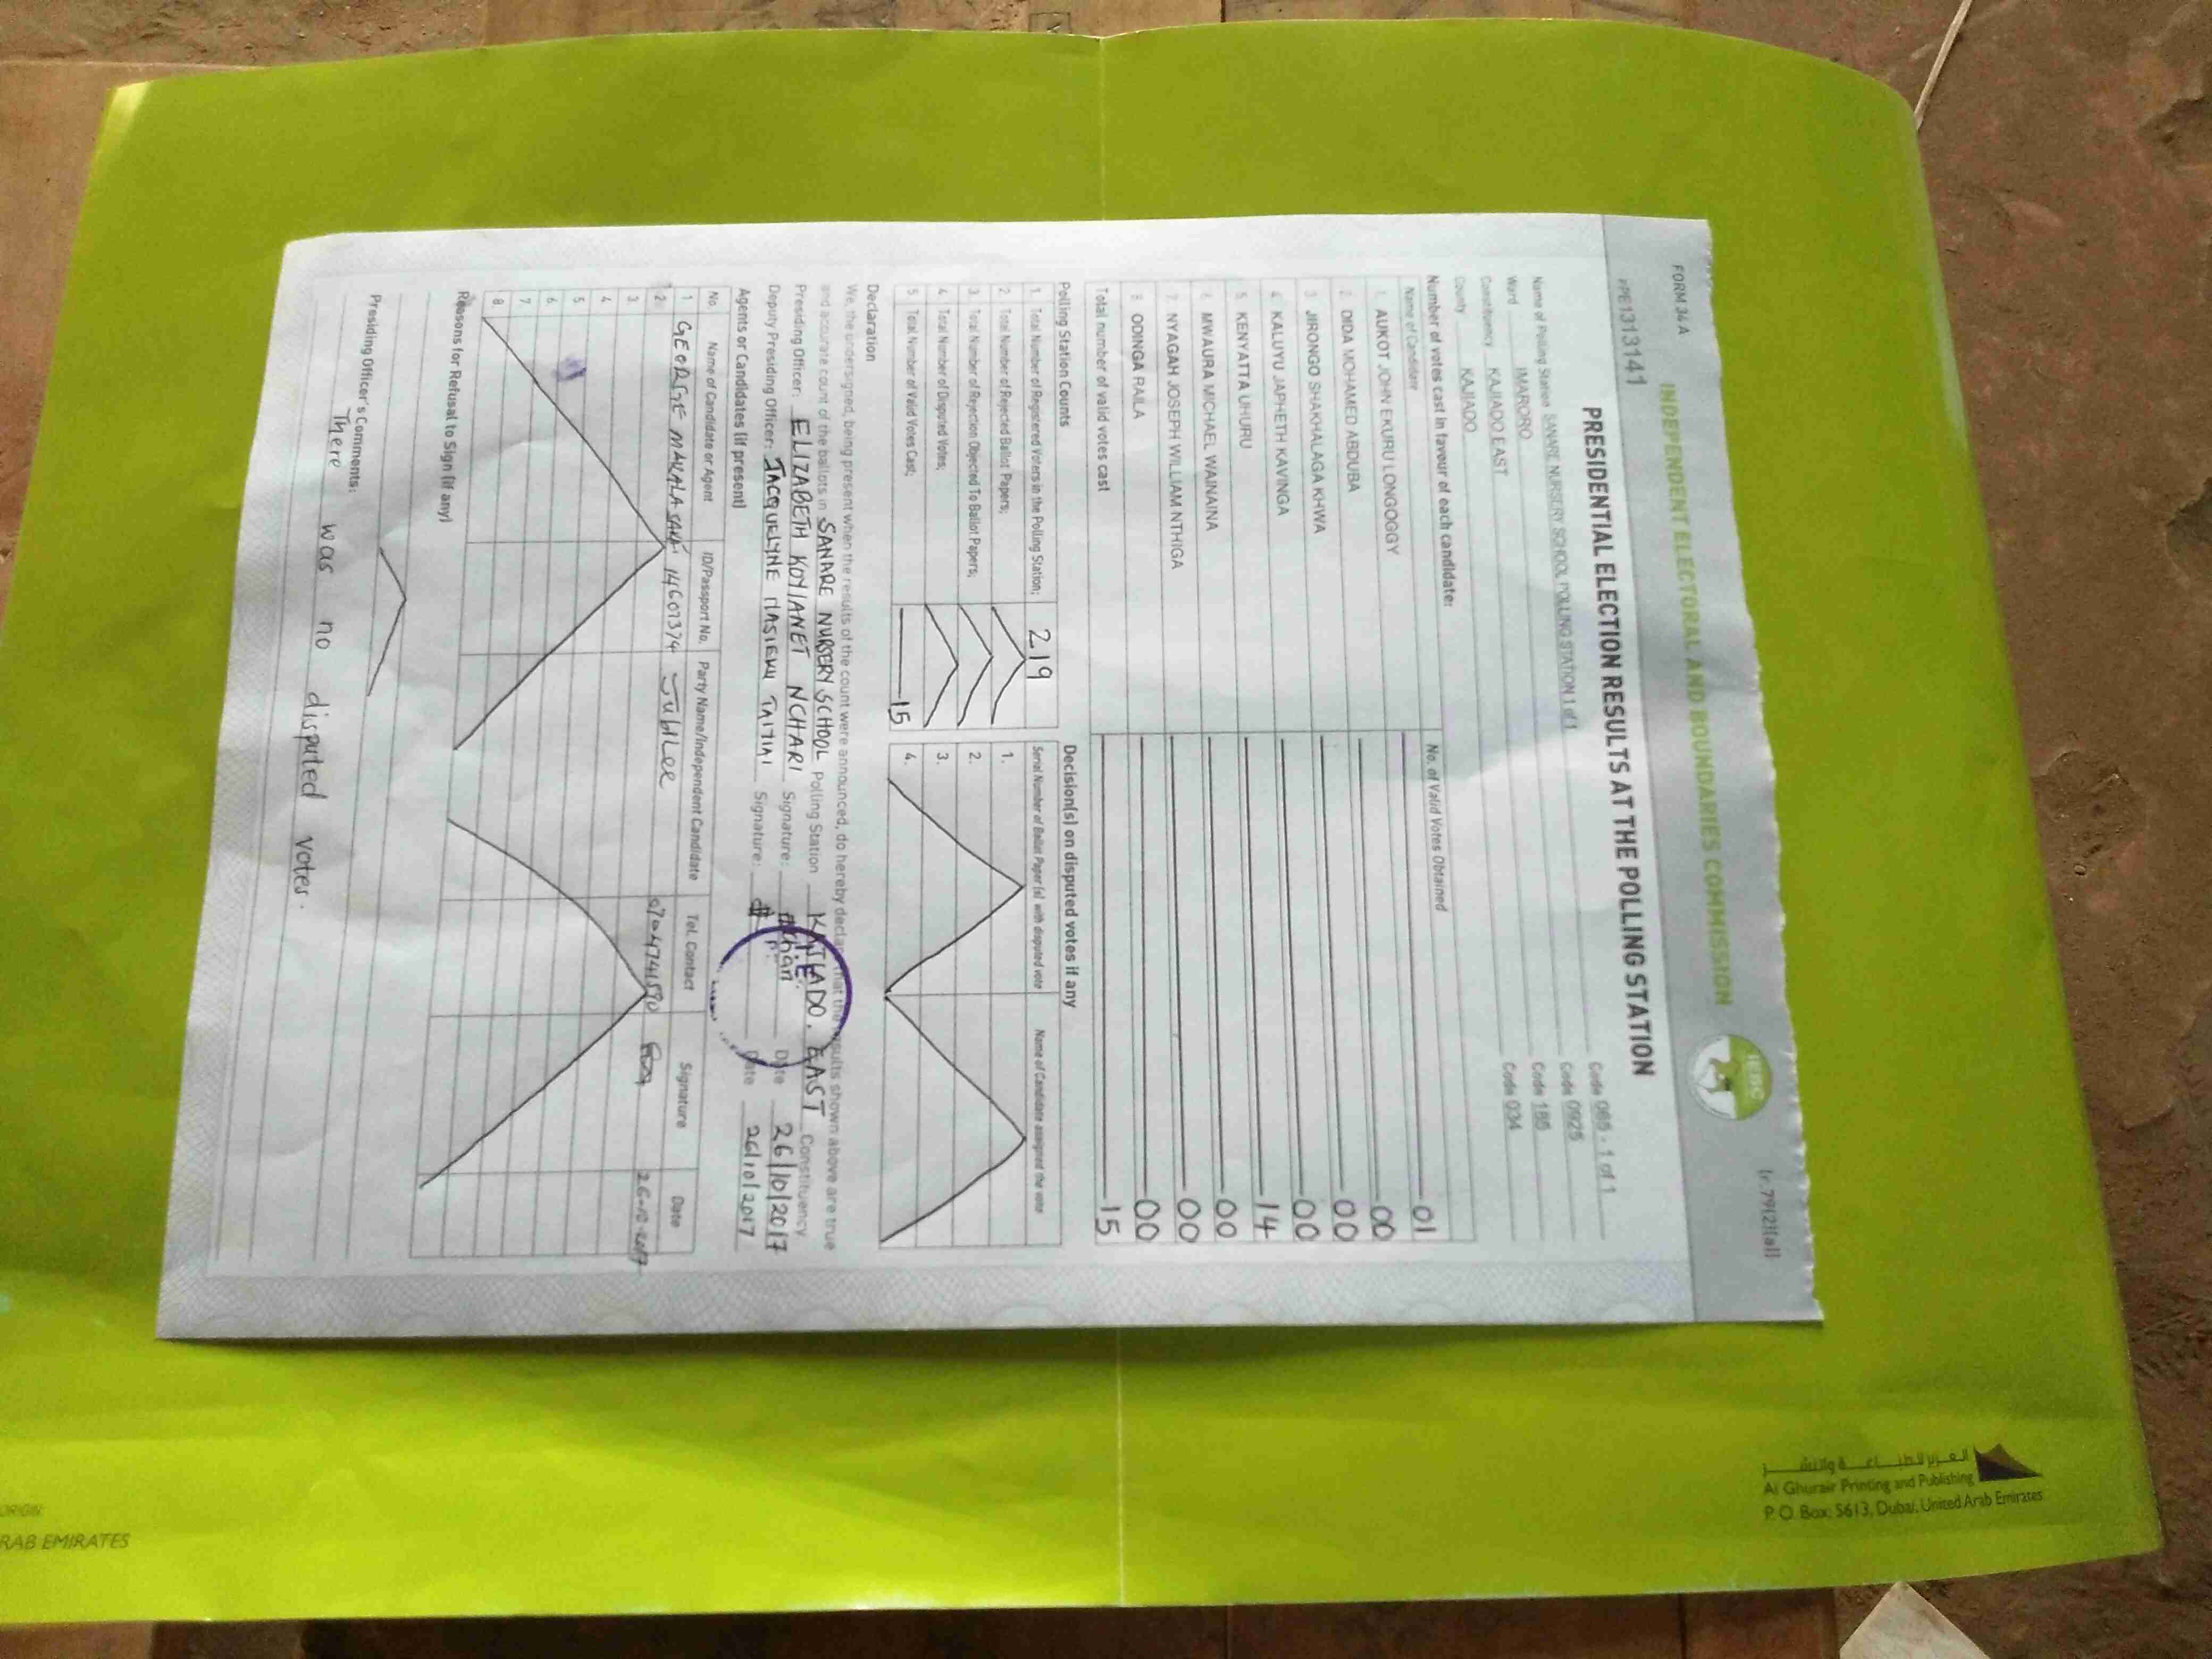 FORM 34 A
(r.79(2)(a))
INDEPENDENT ELECTORAL AND BOUNDARIES COMMISSION
IEBC
PRESIDENTIAL ELECTION RESULTS AT THE POLLING STATION
Name of Polling Station SANARE NURSERY SCHOOL POLLING STATION 1 of 1 Code 085 - 1 of 1
Ward IMARORO Code 0925
Constituency KAJIADO EAST Code 185
County KAJIADO Code 034
Number of votes cast in favour of each candidate:
Name of Candidate No. of Valid Votes Obtained
1. AUKOT JOHN EKURU LONGOGGY 01
2. DIDA MOHAMED ABDUBA 00
3. JIRONGO SHAKHALAGA KHWA 00
4. KALUYU JAPHETH KAVINGA 00
5. KENYATTA UHURU 14
6. MWAURA MICHAEL WAINAINA 00
7. NYAGAH JOSEPH WILLIAM NTHIGA 00
8. ODINGA RAILA 00
Total number of valid votes cast 15
Polling Station Counts
1. Total Number of Registered Voters in the Polling Station; 219
2. Total Number of Rejected Ballot Papers;
3. Total Number of Rejection Objected To Ballot Papers;
4. Total Number of Disputed Votes;
5. Total Number of Valid Votes Cast; 15
Decision(s) on disputed votes if any
Serial Number of Ballot Paper (s) with disputed vote Name of Candidate assigned the vote
1.
2.
3.
4.
Declaration
We, the undersigned, being present when the results of the count were announced, do hereby declare that the results shown above are true
and accurate count of the ballots in SANARE NURSERY SCHOOL Polling Station KAJIADO EAST Constituency
Presiding Officer: ELIZABETH KOYIANET NCHARI Signature: Date 26/10/2017
Deputy Presiding Officer: JACQUELYNE MASIEKU TAITIAI Signature: Date 26/10/2017
Agents or Candidates (if present)
No. Name of Candidate or Agent ID/Passport No. Party Name/Independent Candidate Tel. Contact Signature Date
1 GEORGE MAKALA 14607374 JubiLee 0704741590 26-10-2017
2
3
4
5
6
7
8
Reasons for Refusal to Sign (if any)
Presiding Officer's Comments:
There was no disputed votes.
Al Ghurair Printing and Publishing
P. O. Box: 5613, Dubai, United Arab Emirates
ORIGIN
RAB EMIRATES